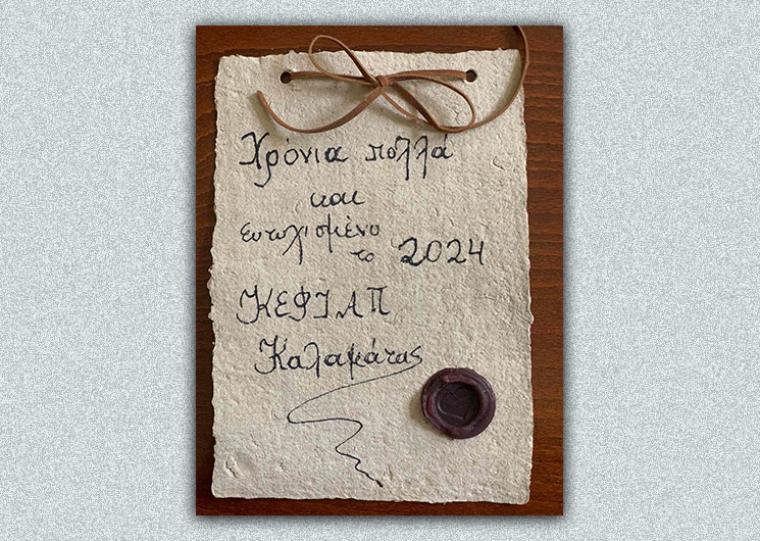 Χρόνια πολλά
και
ευτυχισμένο
το 2024
ΚΕΦΙΑΠ
Καλαμάτας